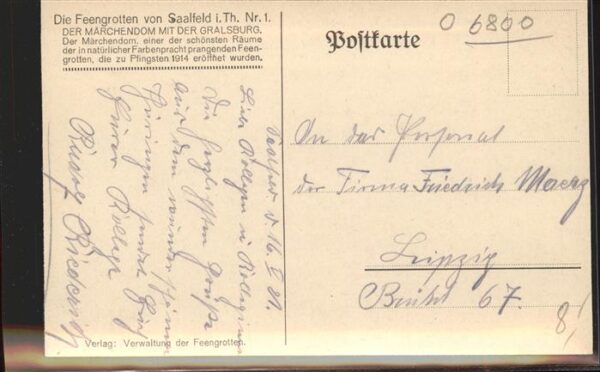 Die Feengrotten von Saalfeld i. Th. Nr. 1.
DER MÄRCHENDOM MIT DER GRALSBURG.
Der Märchendom, einer der schönsten Räume
der in natürlicher Farbenpracht prangenden Feen-
grotten, die zu Pfingsten 1914 eröffnet wurden.
Postkarte
O 6800
Saalfeld d. 16.
Liebe Kollegen u Kolleginnen
Die herzlichsten Grüße
aus dem wunderschönen
Thüringen sendet Euch
Euer Kollege
An das Personal
der Firma Friedrich Maerz
Leipzig
67.
8,
Verlag: Verwaltung der Feengrotten.